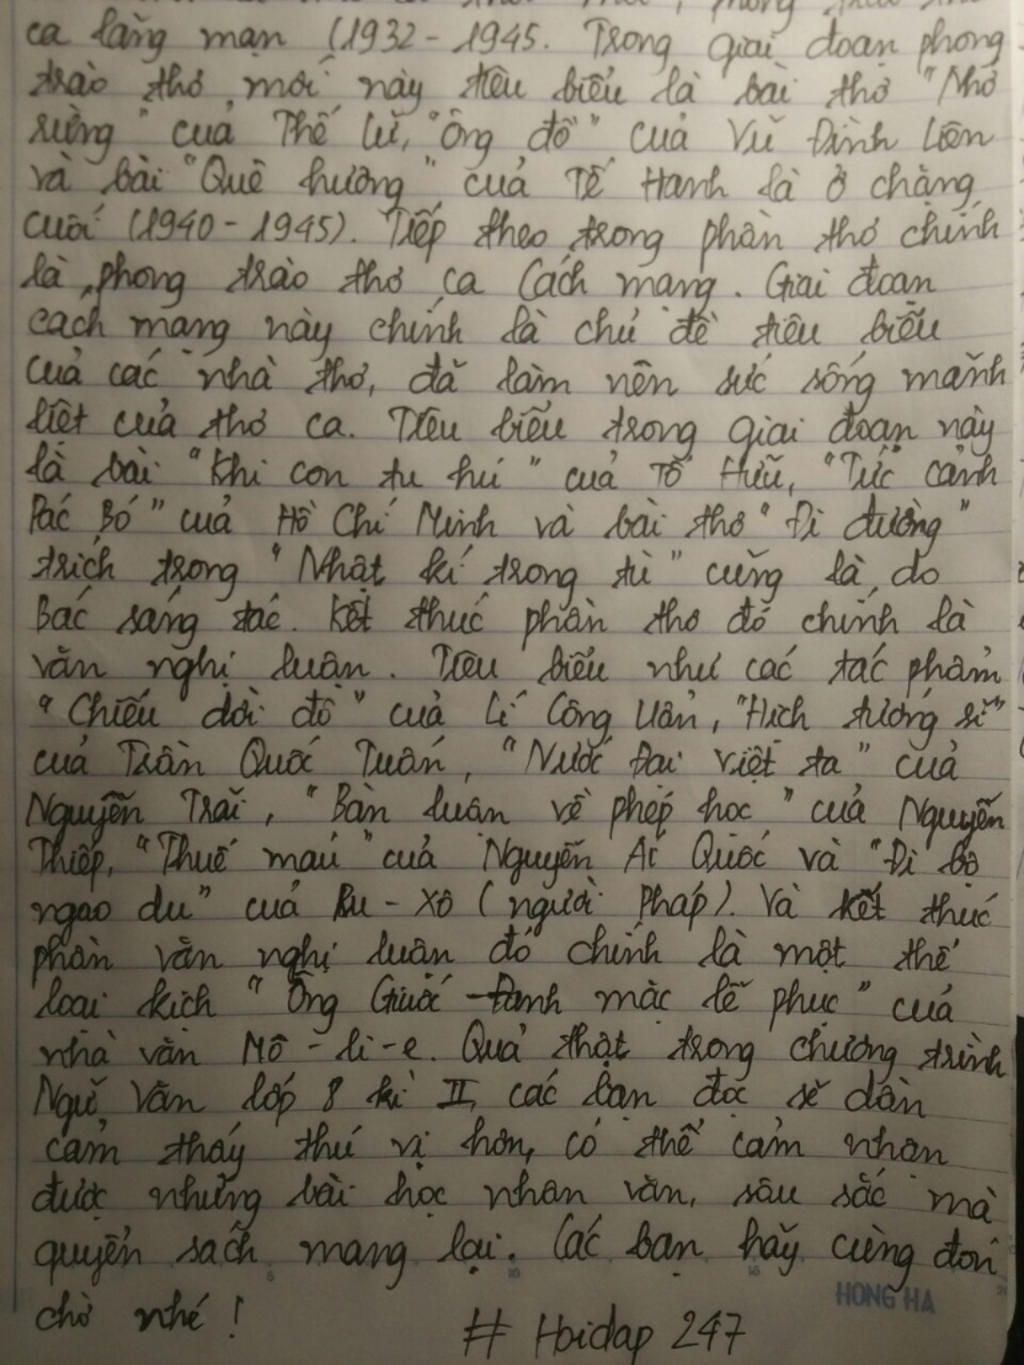 ca lãng mạn (1932 - 1945. Trong giai đoạn phong
trào thơ mới này tiêu biểu là bài thơ "Nhớ
rừng" của Thế Lữ, "Ông đồ" của Vũ Đình Liên
và bài "Quê hương" của Tế Hanh là ở chặng
cuối (1940 - 1945). Tiếp theo trong phần thơ chính
là phong trào thơ ca Cách mạng. Giai đoạn
cách mạng này chính là chủ đề tiêu biểu
của các nhà thơ, đã làm nên sức sống mãnh
liệt của thơ ca. Tiêu biểu trong giai đoạn này
là bài "Khi con tu hú" của Tố Hữu, "Tức cảnh
Pác Bó" của Hồ Chí Minh và bài thơ "Đi đường"
trích trong "Nhật kí trong tù" cũng là do
Bác sáng tác. Kết thúc phần thơ đó chính là
văn nghị luận. Tiêu biểu như các tác phẩm
"Chiếu dời đô" của Lí Công Uẩn, "Hịch tướng sĩ"
của Trần Quốc Tuấn, "Nước Đại Việt ta" của
Nguyễn Trãi, "Bàn luận về phép học" của Nguyễn
Thiếp, "Thuế máu" của Nguyễn Ái Quốc và "Đi bộ
ngao du" của Ru - Xô (người Pháp). Và kết thúc
phần văn nghị luận đó chính là một thể
loại kịch "Ông Giuốc - Đanh mặc lễ phục" của
nhà văn Mô - li - e. Quả thật trong chương trình
Ngữ Văn lớp 8 kì II, các bạn đọc sẽ dần
cảm thấy thú vị hơn, có thể cảm nhận
được những bài học nhân văn, sâu sắc mà
quyển sách mang lại. Các bạn hãy cùng đón
chờ nhé!
HONG HA
# Hoidap 247